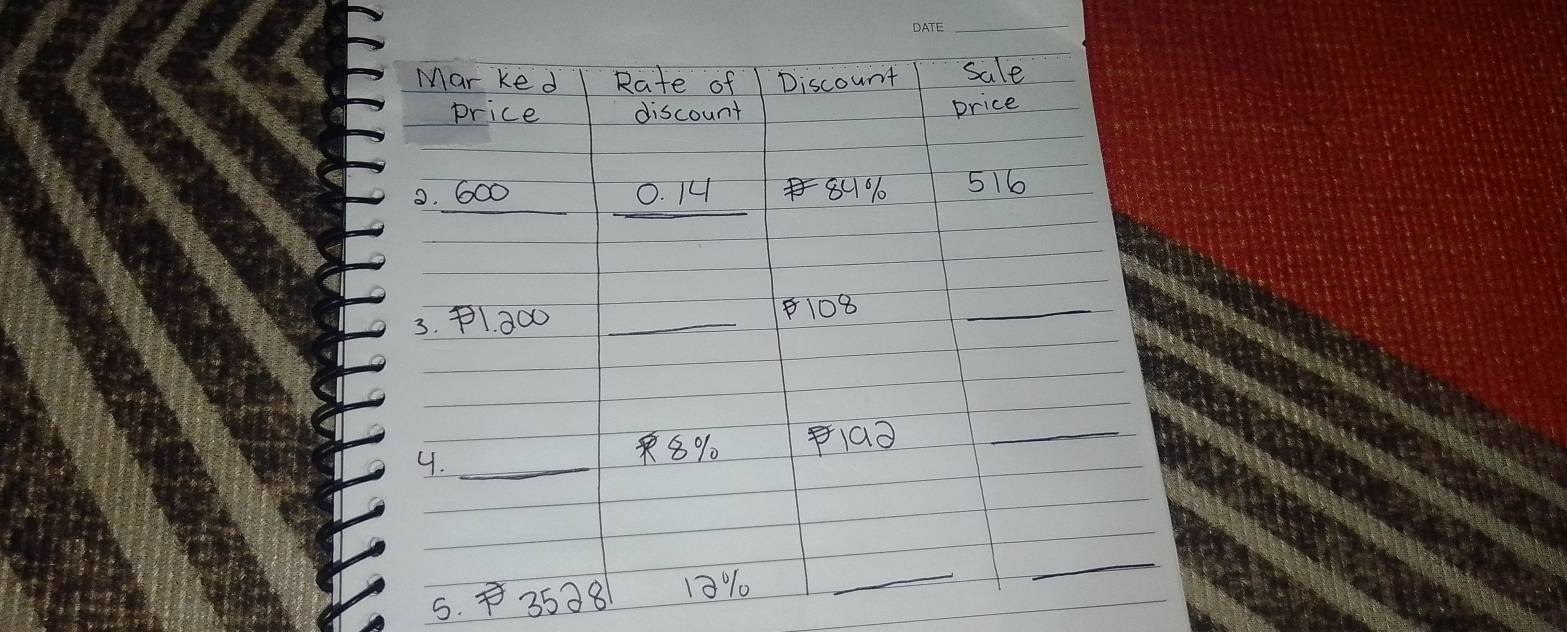 DATE
Marked Rate of Discount Sale
price discount price
2. 600 0.14 ₱84% 516
3. ₱1.200 ₱108
4. ₱8% ₱192
5. ₱3528 12%